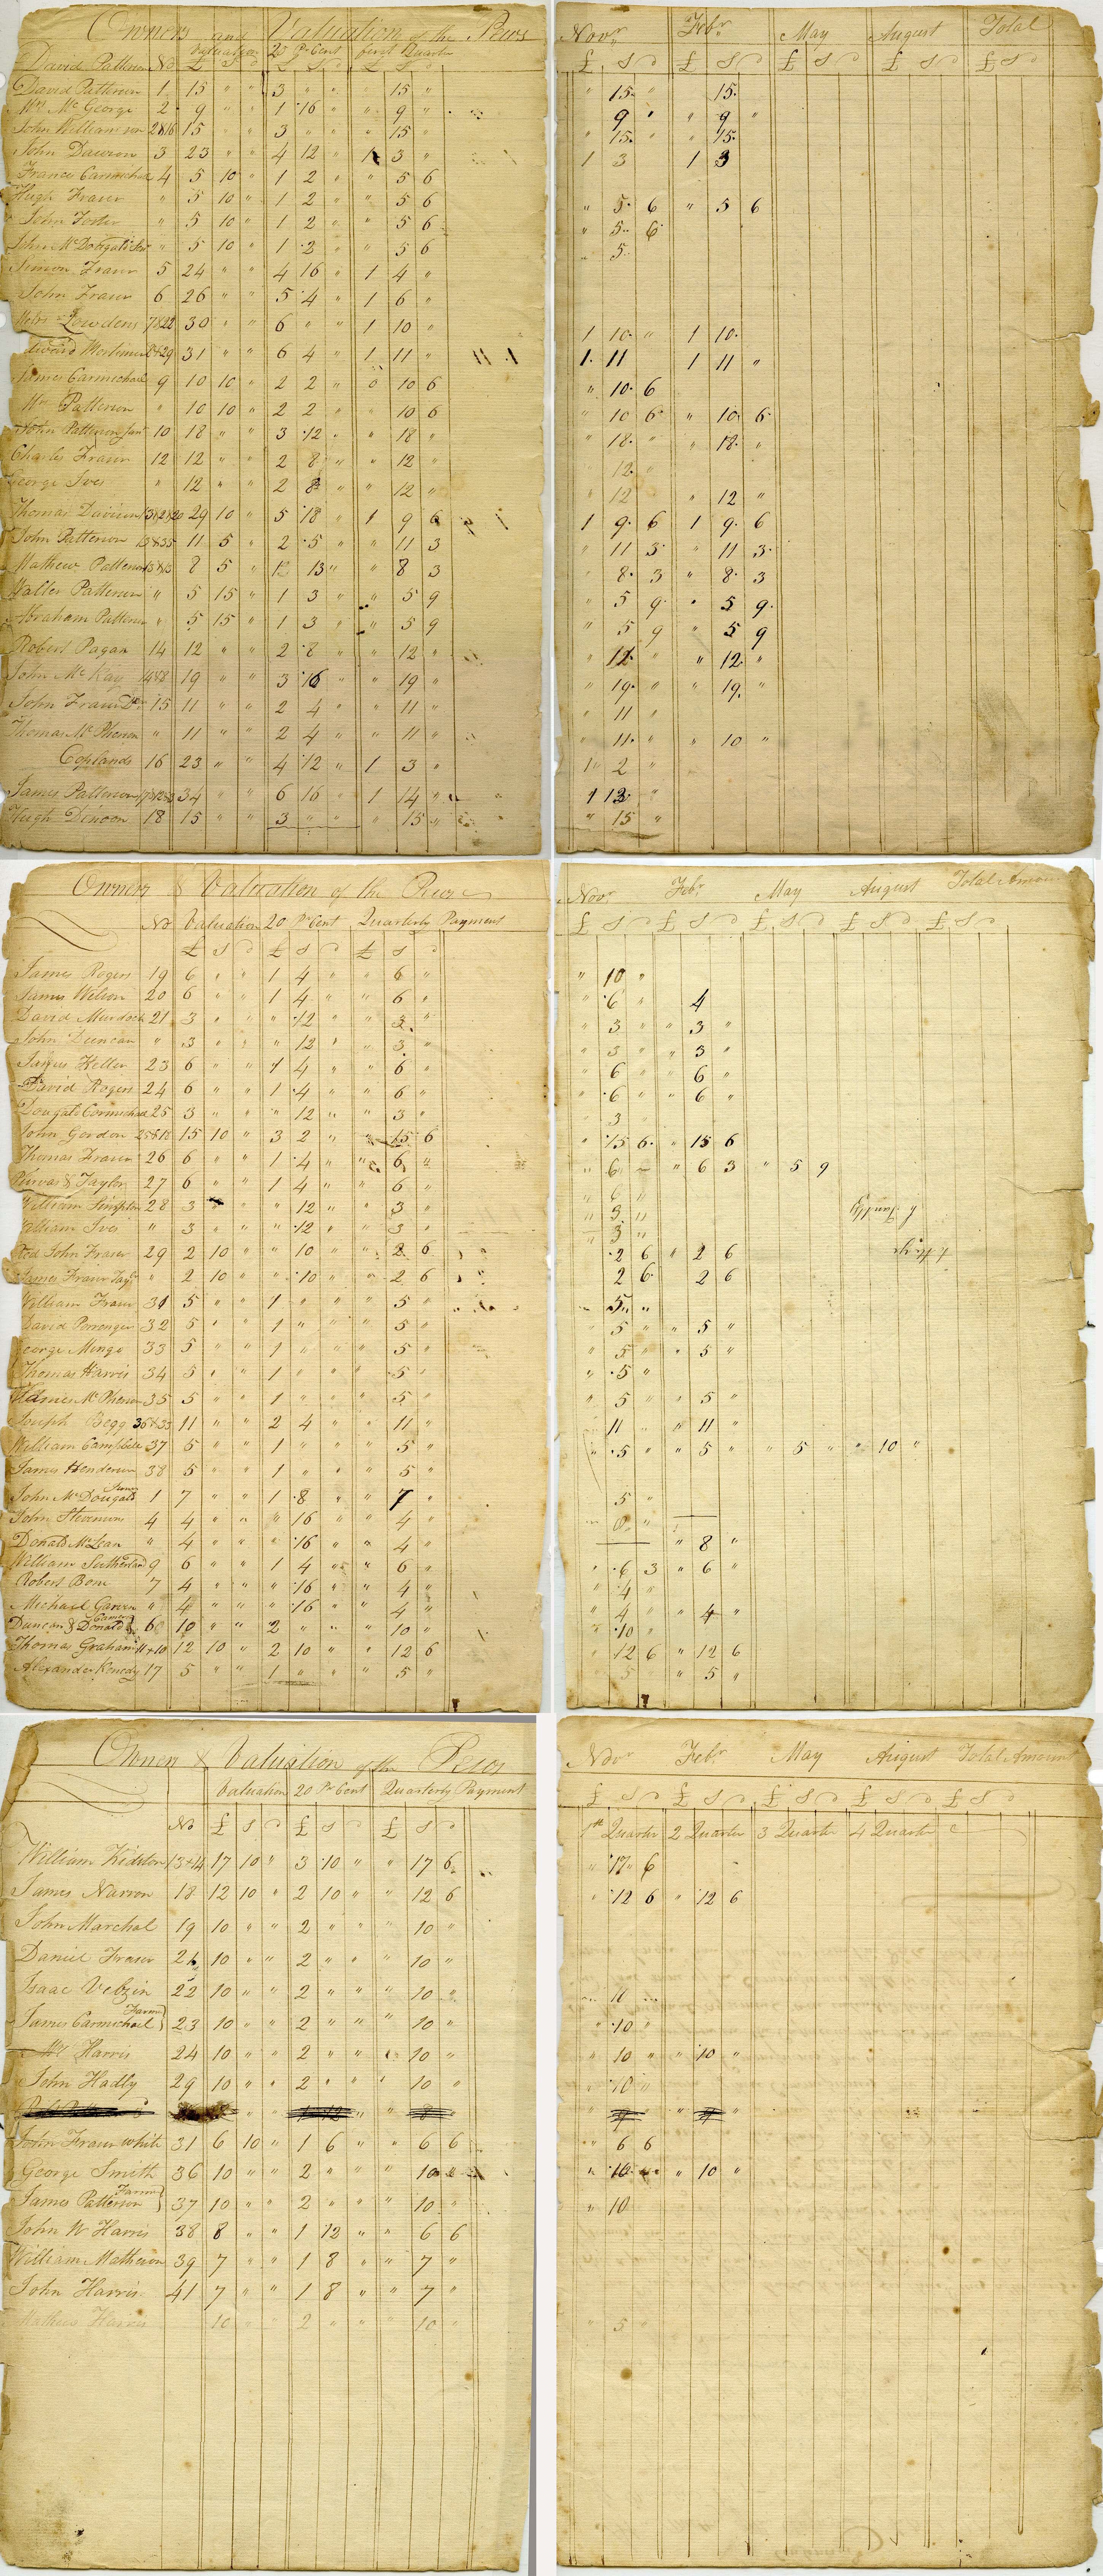 Owners and Valuation of the Pews
Valuation 20 Pr Cent first Quarter
David Patterson No £ S D £ S D £ S D
David Patterson 1 15 " " 3 " " 15 "
Mrs McGeorge 2 9 " " 1 16 " " 9 "
John Williamson 2&16 15 " " 3 " " " 15 "
John Dawson 3 23 " " 4 12 " 1 3 "
Francis Carmichael 4 5 10 " 1 2 " " 5 6
Hugh Fraser " 5 10 " 1 2 " " 5 6
John Foster " 5 10 " 1 2 " " 5 6
John McDougald " 5 10 " 1 2 " " 5 6
Simon Fraser 5 24 " " 4 16 " 1 4 "
John Fraser 6 26 " " 5 4 " 1 6 "
Lowdens 7&22 30 " " 6 " " 1 10 "
Edward Mortimer 8&29 31 " " 6 4 " 1 11 " 1 11
James Carmichael 9 10 10 " 2 2 " 0 10 6
Wm Patterson " 10 10 " 2 2 " " 10 6
John Patterson Junr 10 18 " " 3 12 " " 18 "
Charles Fraser 12 12 " " 2 8 " " 12 "
George Ives " 12 " " 2 8 " " 12 "
Thomas Davison 29 10 " 5 18 " 1 9 6
John Patterson 13&35 11 5 " 2 5 " " 11 3
Mathew Patterson 8 5 " 13 " " 8 3
Walter Patterson " 5 15 " 1 3 " " 5 9
Abraham Patterson " 5 15 " 1 3 " " 5 9
Robert Pagan 14 12 " " 2 8 " " 12 "
John McKay 14&8 19 " " 3 16 " " 19 "
John Fraser 15 11 " " 2 4 " " 11 "
Thomas McPherson " 11 " " 2 4 " " 11 "
Coplands 16 23 " " 4 12 " 1 3 "
James Patterson 34 " " 6 16 " 1 14 "
Hugh Denoon 18 15 " " 3 " " " 15 "
Novr Febr May August Total
£ S D £ S D £ S D £ S D £ S D
" 15 " 15
9 " " 9 "
" 15 " " 15
1 3 1 3
" 5 6 " 5 6
" 5 6
" 5
1 10 " 1 10
1 11 1 11 "
" 10 6
" 10 6 " 10 6
" 18 " " 18 "
" 12 "
" 12 " 12 "
1 9 6 1 9 6
" 11 3 " 11 3
" 8 3 " 8 3
" 5 9 " 5 9
" 5 9 " 5 9
" 12 " " 12 "
" 19 " " 19 "
" 11 "
" 11 " " 10 "
1 2 "
1 13 "
" 15 "
Owners & Valuation of the Pews
No Valuation 20 Pr Cent Quarterly Payment
£ S D £ S D £ S D
James Rogers 19 6 " " 1 4 " " 6 "
James Wilson 20 6 " " 1 4 " " 6 "
David Murdoch 21 3 " " " 12 " " 3 "
John Duncan " 3 " " " 12 " " 3 "
James Keller 23 6 " " 1 4 " " 6 "
David Rogers 24 6 " " 1 4 " " 6 "
Dougald Carmichael 25 3 " " " 12 " " 3 "
John Gordon 25&10 15 10 " 3 2 " " 15 6
Thomas Fraser 26 6 " " 1 4 " " 6 "
Purvas & Taylor 27 6 " " 1 4 " " 6 "
William Simpson 28 3 " " 12 " " 3 "
William Ives " 3 " " " 12 " " 3 "
Red John Fraser 29 2 10 " " 10 " " 2 6
James Fraser Taylr " 2 10 " " 10 " " 2 6
William Fraser 31 5 " " 1 " " " 5 "
David Porrenger 32 5 " " 1 " " " 5 "
George Mingo 33 5 " " 1 " " " 5 "
Thomas Harris 34 5 " " 1 " " " 5 "
James McPherson 35 5 " " 1 " " " 5 "
Joseph Begg 36&33 11 " " 2 4 " " 11 "
William Campbell 37 5 " " 1 " " " 5 "
James Henderson 38 5 " " 1 " " " 5 "
John McDougald 1 7 " " 1 8 " " 7 "
John Stevenson 4 4 " " " 16 " " 4 "
Donald McLean " 4 " " " 16 " " 4 "
William Sutherland 9 6 " " 1 4 " " 6 "
Robert Bone 7 4 " " " 16 " " 4 "
Michael Garven " 4 " " " 16 " " 4 "
Duncan & Donald Cameron 6 10 " " 2 " " " 10 "
Thomas Graham 11+10 12 10 " 2 10 " " 12 6
Alexander Kenedy 17 5 " " 1 " " " 5 "
Novr Febr May August Total Amount
£ S D £ S D £ S D £ S D £ S D
" 10 "
" 6 " 4
" 3 " " 3 "
" 3 " " 3 "
" 6 " " 6 "
" 6 " " 6 "
3 "
" 15 6 " 15 6
" 6 " " 6 3 " 5 9
" 6 "
" 3 "
" 3 "
2 6 " 2 6
2 6 2 6
" 5 "
" 5 " " 5 "
" 5 " " 5 "
" 5 "
" 5 " " 5 "
11 " " 11 "
" 5 " " 5 " " 5 " " 10 "
5 "
" 8 "
" 6 3 " 6 "
" 4 "
" 4 " " 4 "
" 10 "
" 12 6 " 12 6
5 " " 5 "
Owners & Valuation of the Pews
Valuation 20 Pr Cent Quarterly Payment
No £ S D £ S D £ S D
William Kidston 13+14 17 10 " 3 10 " " 17 6
James Narron 18 12 10 " 2 10 " " 12 6
John Marchal 19 10 " " 2 " " " 10 "
Daniel Fraser 21 10 " " 2 " " " 10 "
Isaac 22 10 " " 2 " " " 10 "
James Carmichael Farmer 23 10 " " 2 " " " 10 "
Harris 24 10 " " 2 " " " 10 "
John Hadly 29 10 " " 2 " " " 10 "
1 12 " " 8 "
John Fraser white 31 6 10 " 1 6 " " 6 6
George Smith 36 10 " " 2 " " " 10
James Patterson Farmer 37 10 " " 2 " " " 10 "
John W Harris 38 8 " " 1 12 " " 6 6
William Matheson 39 7 " " 1 8 " " 7 "
John Harris 41 7 " " 1 8 " " 7 "
Mathew Harris 10 " " 2 " " " 10 "
Novr Febr May August Total Amount
£ S D £ S D £ S D £ S D £ S D
1st Quarter 2 Quarter 3 Quarter 4 Quarter
" 17 6
" 12 6 " 12 6
" 10 "
" 10 "
" 10 " " 10 "
" 10 "
" 6 6
" 10 " " 10 "
" 10
" 5